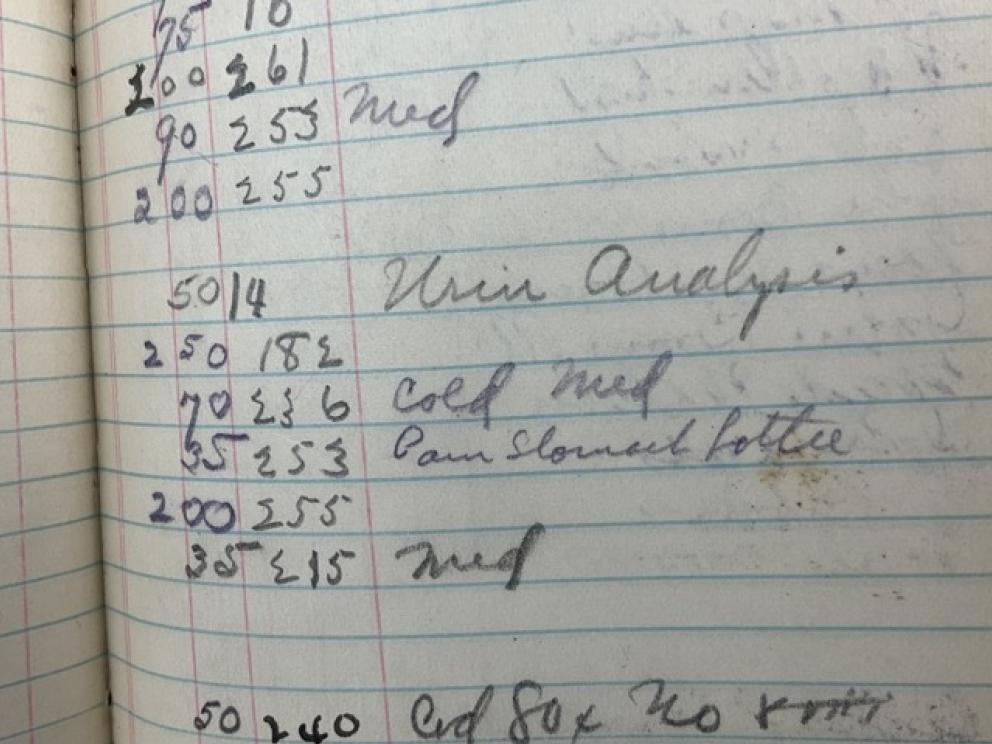 75 10
100 261
90 253 Med
200 255
50 14 Urin Analysis
250 182
70 236 Cold Med
35 253 Pain Stomach
200 255
35 215 Med
50 240 80x No